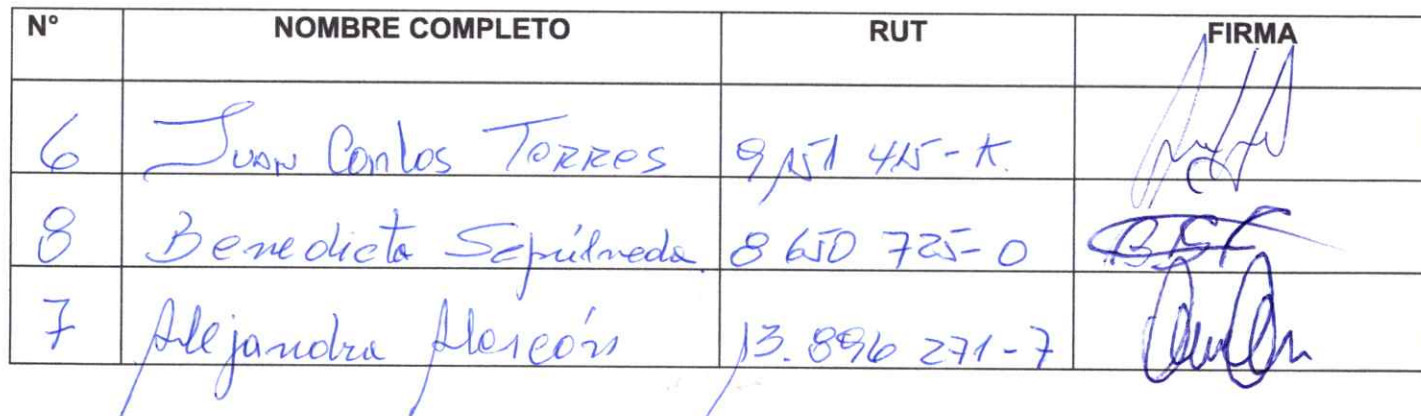 N° NOMBRE COMPLETO RUT FIRMA
6 Juan Carlos Torres 9.151 415-K.
8 Benedicta Sepúlveda 8 650 725-0
7 Alejandra Alarcón 13.896 271-7